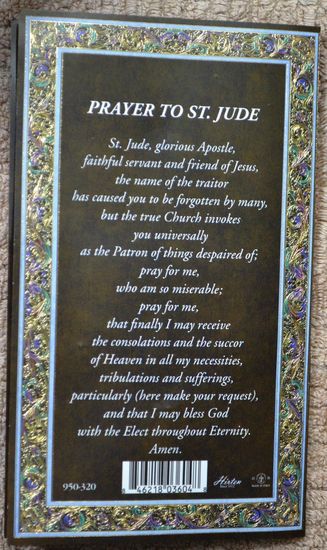 PRAYER TO ST. JUDE
St. Jude, glorious Apostle,
faithful servant and friend of Jesus,
the name of the traitor
has caused you to be forgotten by many,
but the true Church invokes
you universally
as the Patron of things despaired of;
pray for me,
who am so miserable;
pray for me,
that finally I may receive
the consolations and the succor
of Heaven in all my necessities,
tribulations and sufferings,
particularly (here make your request),
and that I may bless God
with the Elect throughout Eternity.
Amen.
950-320
46218 03604
Hirten